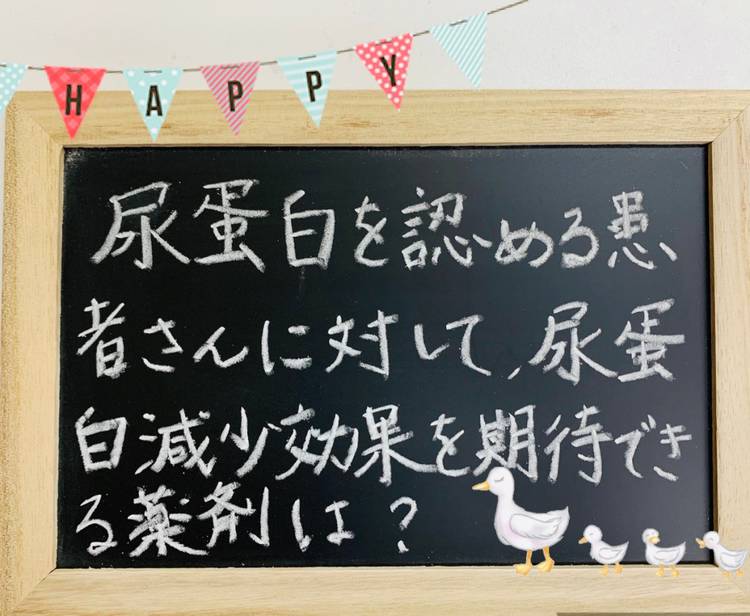 HAPPY
尿蛋白を認める患
者さんに対して、尿蛋
白減少効果を期待でき
る薬剤は?